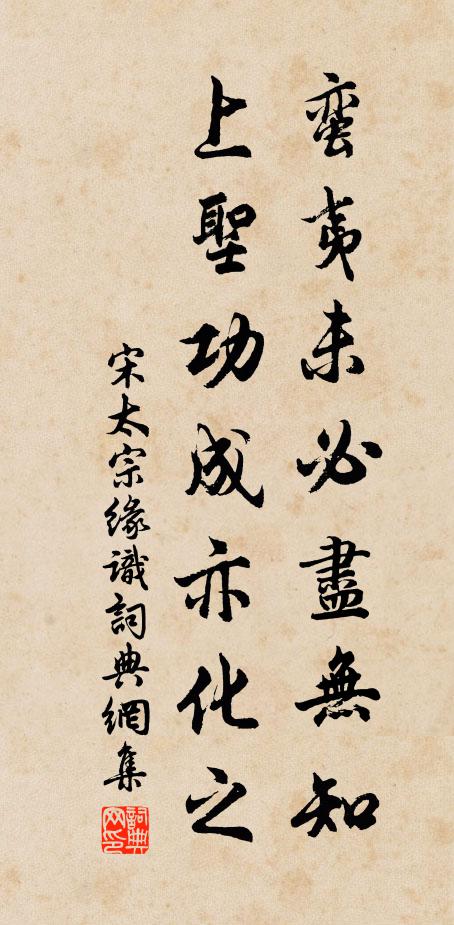 蛮夷未必盡無知
上聖功成亦化之
宋太宗緣識詞典網集
詞典网印